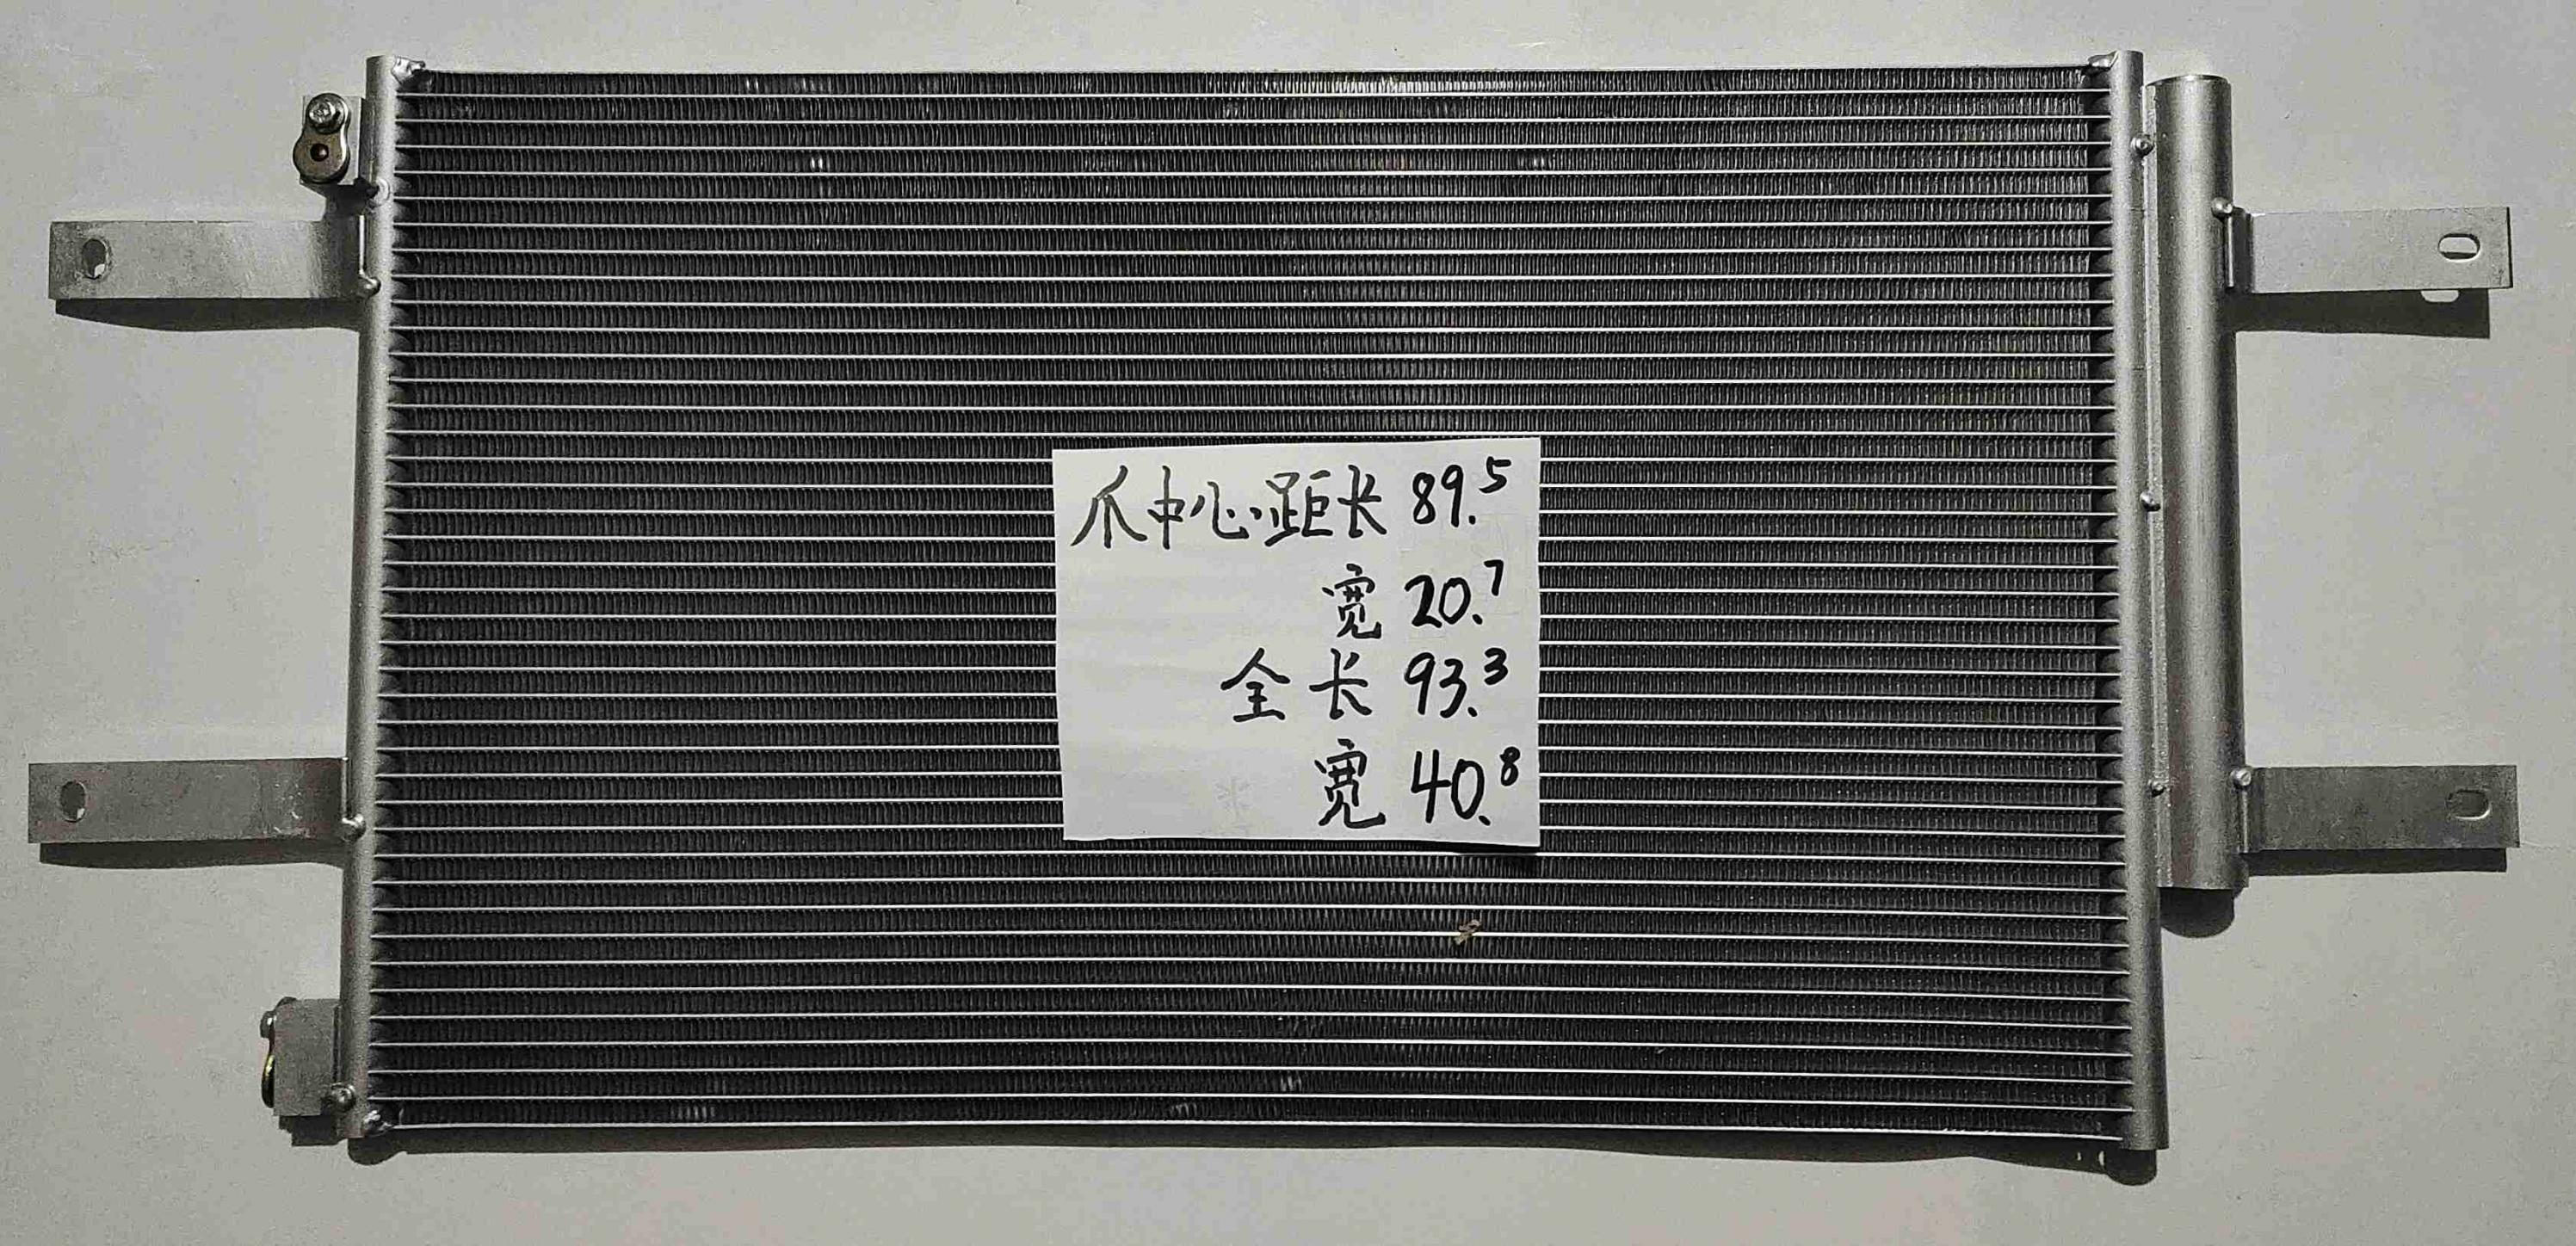 爪中心距长 89.5
宽 20.7
全长 93.3
宽 40.8